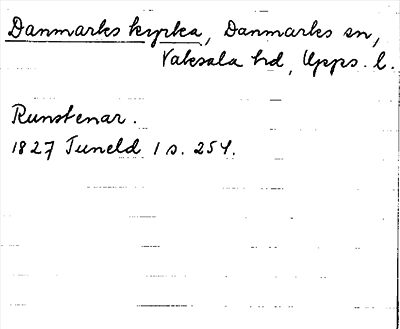 Danmarks kyrka, Danmarks sn,
Vaksala hd, Upps. l.
Runstenar.
1827 Tuneld I s. 254.